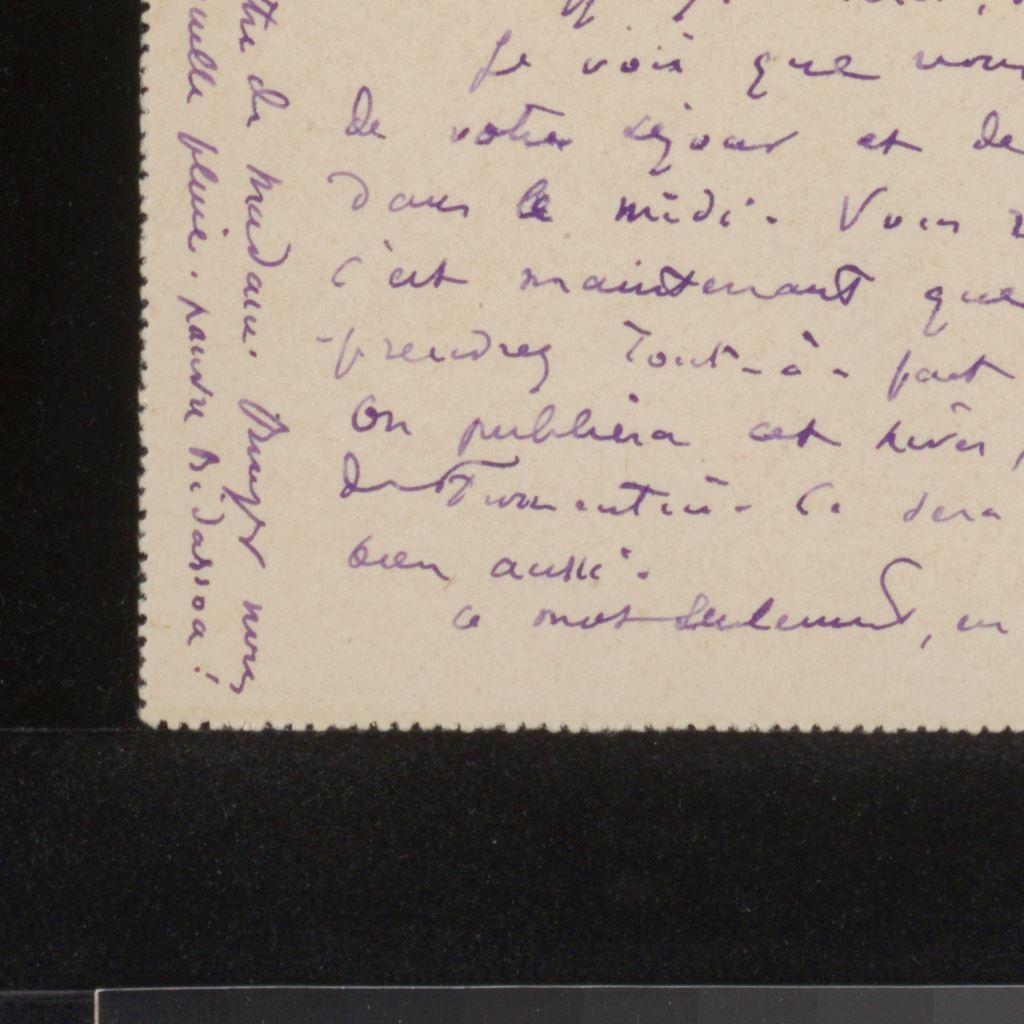 Je vois que vous
de votre séjour et de
dans le midi. Vous
c'est maintenant que
prendrez tout-à-fait
On publiera cet hiver,
de Fromentin. Ce sera
bien aussi.
ce mot seulement, en
de Madame. Pluye
pluie. pauvre Bidassoa!